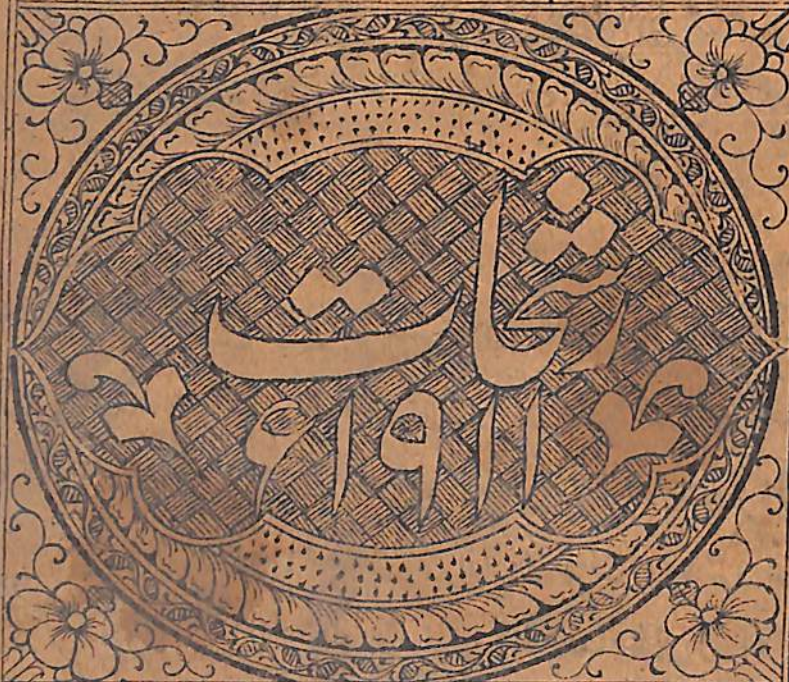 رشحات
۱۹۱۱ء